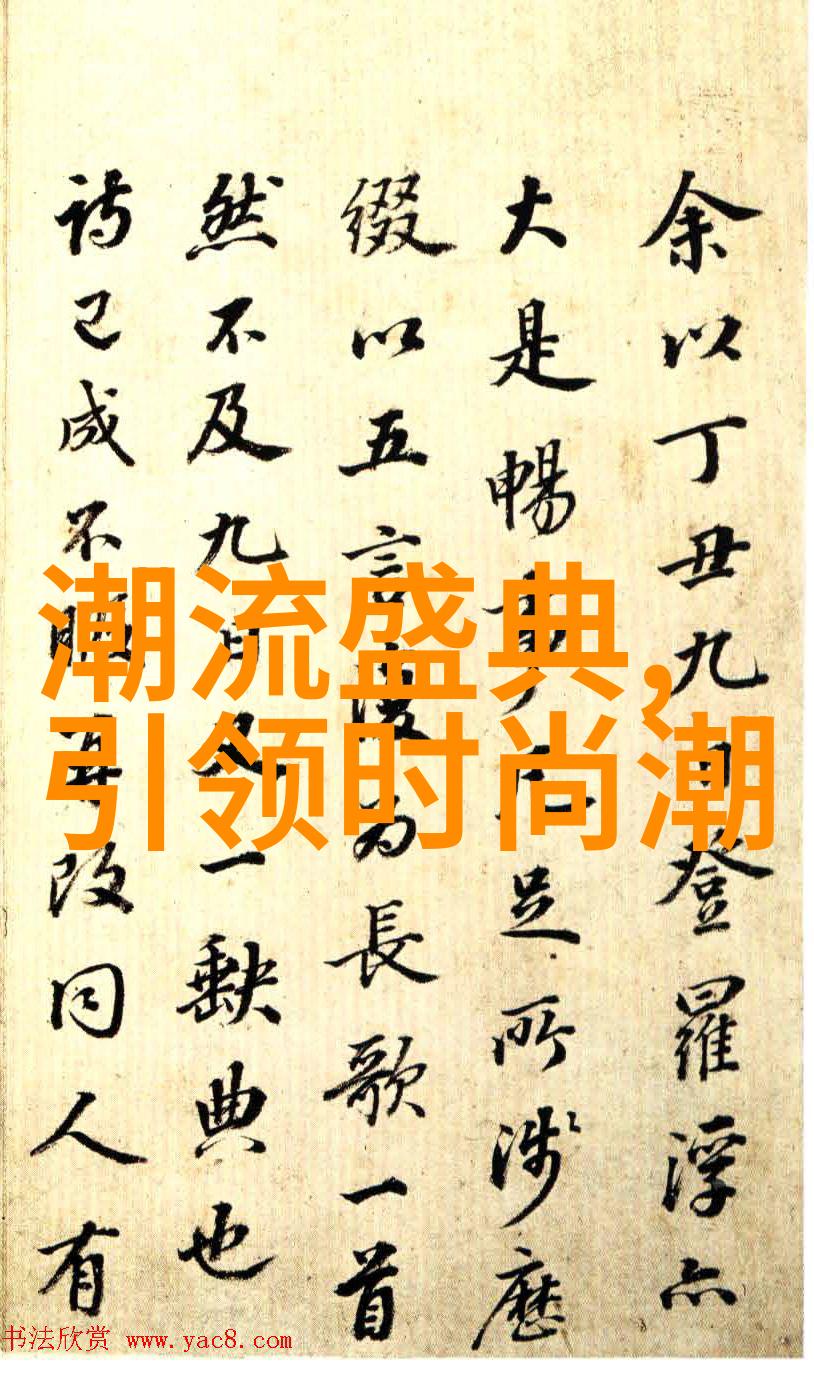 余以丁丑九日登羅浮亦
大是暢足所涉歷
綴以五言復為長歌一首
然不及九日又一缺典也
詩已成不暇再改同人有
潮流盛典,
引领时尚潮
书法欣赏 www.yac8.com